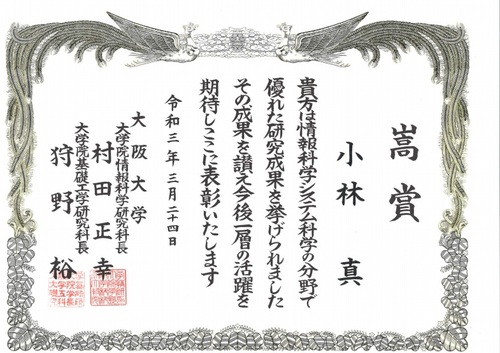 嵩賞
小林 真
貴方は情報科学システム科学の分野で
優れた研究成果を挙げられました
その成果を讃え今後一層の活躍を
期待しここに表彰いたします
令和三年三月二十四日
大阪大学
大学院情報科学研究科長
村田正幸
大学院基礎工学研究科長
狩野 裕